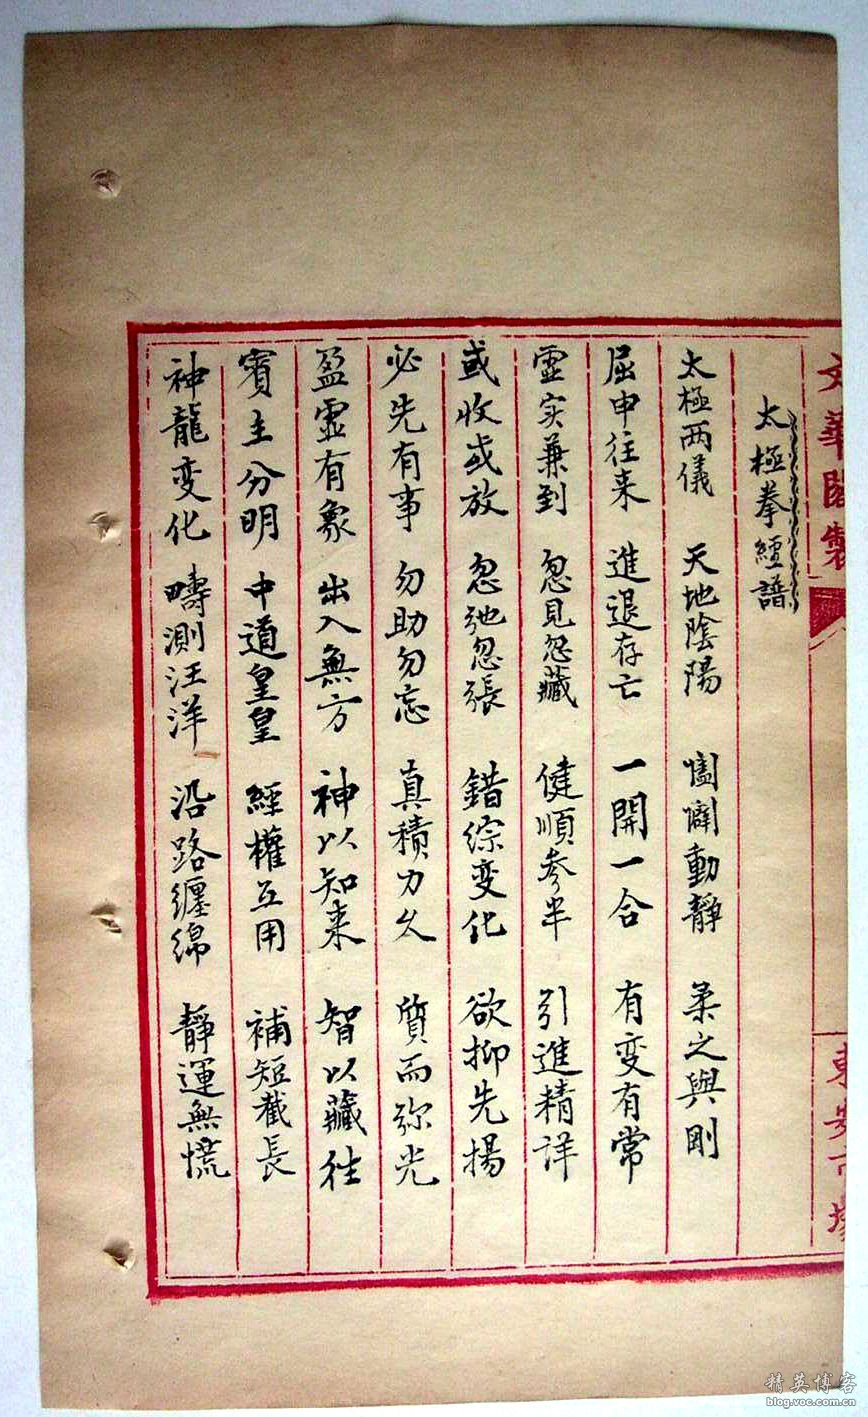 文華閣製
東安市場
太極拳經譜
太極两儀 天地陰陽 闔闢動靜 柔之與剛
屈申往来 進退存亡 一開一合 有变有常
虚实兼到 忽見忽藏 健順参半 引進精详
或收或放 忽弛忽張 錯综变化 欲抑先揚
必先有事 勿助勿忘 真積力久 質而弥光
盈虚有象 出入無方 神以知来 智以藏往
賓主分明 中道皇皇 經權互用 補短截長
神龍变化 疇测汪洋 沿路缠绵 靜運無慌
精英博客
blog.voc.com.cn